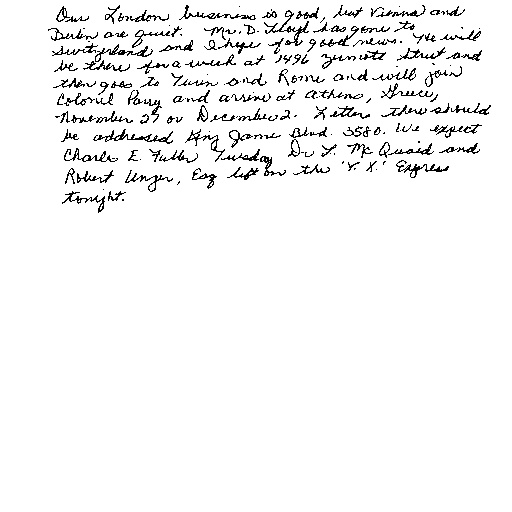 Our London business is good, but Vienna and
Berlin are quiet. Mr. D. Lloyd has gone to
Switzerland and I hope for good news. He will
be there for a week at 1496 Zermott Street and
then goes to Turin and Rome and will join
Colonel Parry and arrive at Athens, Greece,
November 27 or December 2. Letters there should
be addressed King James Blvd. 3580. We expect
Charles E. Fuller Tuesday. Dr L. McQuaid and
Robert Unger, Esq left on the 'Y. X.' Express
tonight.